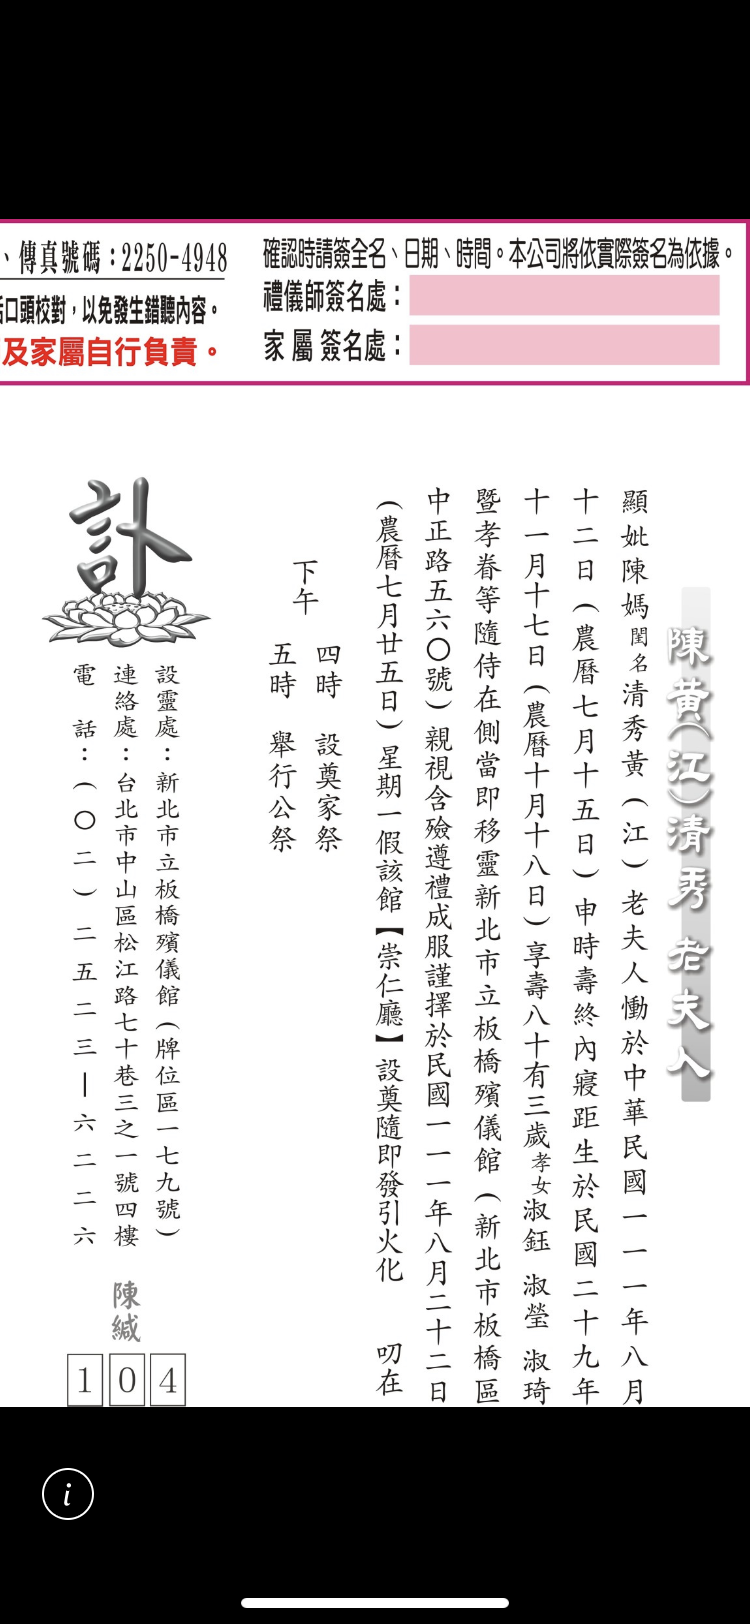 、傳真號碼：2250-4948
話口頭校對，以免發生錯聽內容。
及家屬自行負責。
確認時請簽全名、日期、時間。本公司將依實際簽名為依據。
禮儀師簽名處：
家屬簽名處：
陳黃（江）清秀老夫人
顯妣陳媽閨名清秀黃（江）老夫人慟於中華民國一一一年八月
十二日（農曆七月十五日）申時壽終內寢距生於民國二十九年
十一月十七日（農曆十月十八日）享壽八十有三歲孝女淑鈺 淑瑩 淑琦
暨孝眷等隨侍在側當即移靈新北市立板橋殯儀館（新北市板橋區
中正路五六〇號）親視含殮遵禮成服謹擇於民國一一一年八月二十二日
（農曆七月廿五日）星期一假該館【崇仁廳】設奠隨即發引火化 叨在
下午
四時 設奠家祭
五時 舉行公祭
訃
設靈處：新北市立板橋殯儀館（牌位區一七九號）
連絡處：台北市中山區松江路七十巷三之一號四樓
電 話：（〇二）二五二三—六二二六
陳緘
104